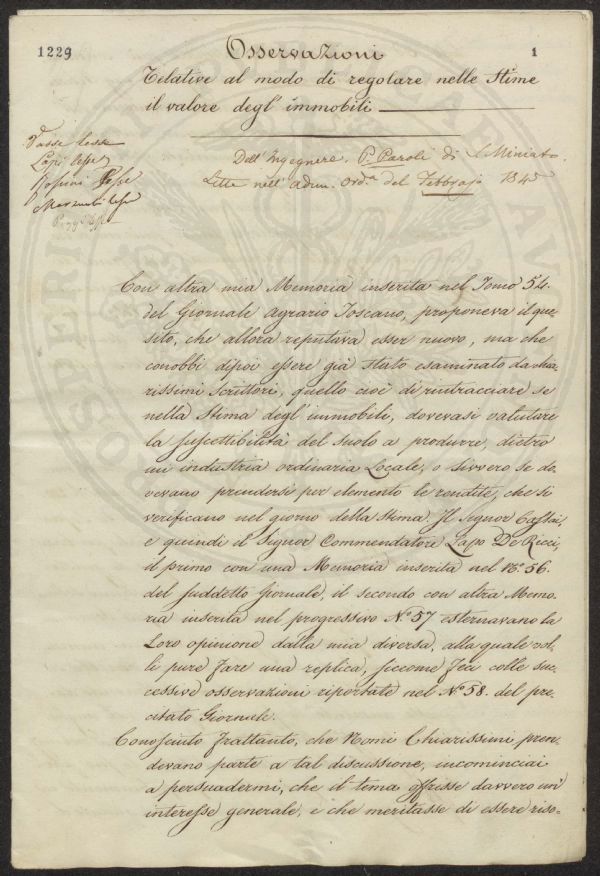 1229
1
Osservazioni
Relative al modo di regolare nelle Stime
il valore degl'immobili
Tasse lesse
Lapi lesse
Rossini lesse
Dell'Ingegnere P. Paroli di S. Miniato.
Lette nell'adun. Ord.ª del Febbrajo 1845
Con altra mia Memoria inserita nel Tomo 54.
del Giornale Agrario Toscano, proponeva il que
sito, che allora reputava esser nuovo, ma che
conobbi dipoi essere già stato esaminato da chia
rissimi Scrittori, quello cioè di rintracciare se
nella Stima degl'immobili, dovevasi valutare
la suscettibilità del suolo a produrre, dietro
un industria ordinaria Locale, o sivvero se do
vevano prendersi per elemento le rendite, che si
verificano nel giorno della Stima. Il Signor
e quindi il Signor Commendatore Lapo De Ricci,
il primo con una Memoria inserita nel N.º 56.
del suddetto Giornale, il secondo con altra Memo
ria inserita nel progressivo N.º 57 esternavano la
Loro opinione dalla mia diversa, alla quale vol
li pure fare una replica, siccome feci colle suc
cessive osservazioni riportate nel N.º 58. del pre
citato Giornale.
Conosciuto frattanto, che Nomi Chiarissimi pren
devano parte a tal discussione, incominciai
a persuadermi, che il tema offrisse davvero un'
interesse generale, e che meritasse di essere riso-